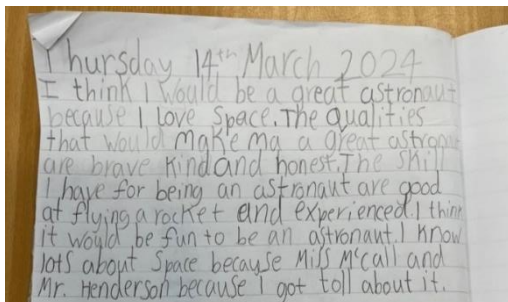 Thursday 14th March 2024
I think I would be a great astronaut
because I love space. The qualities
that would make ma a great astronaut
are brave kind and honest. The skill
I have for being an astronaut are good
at flying a rocket and experienced. I think
it would be fun to be an astronaut. I know
lots about space because Miss McCall and
Mr. Henderson because I got toll about it.